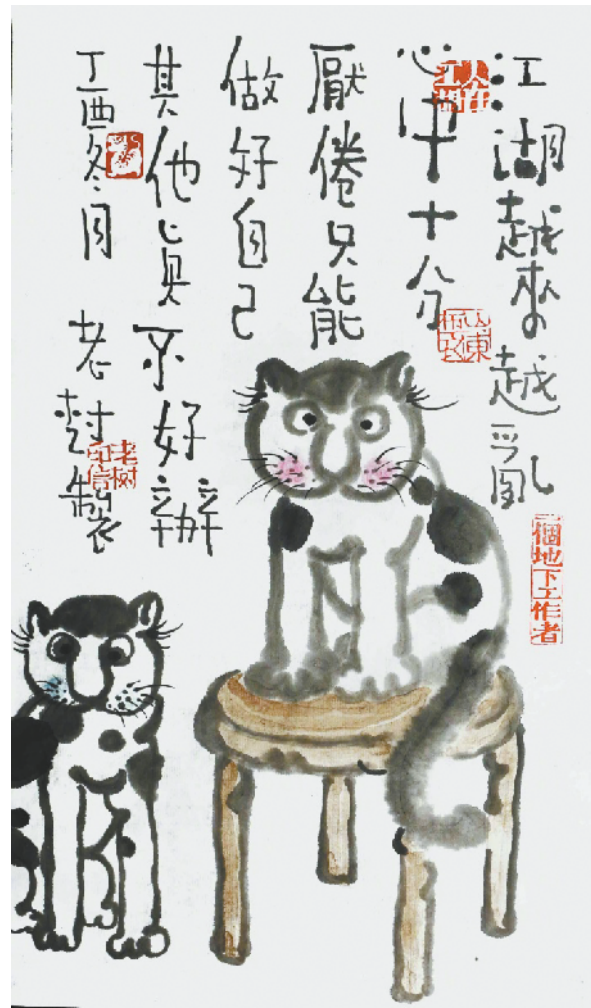 江湖越來越亂
心中十分
厭倦只能
做好自己
其他真不好辦
丁酉冬月 老樹製
人在江湖
山東
一個地下工作者
老树印信